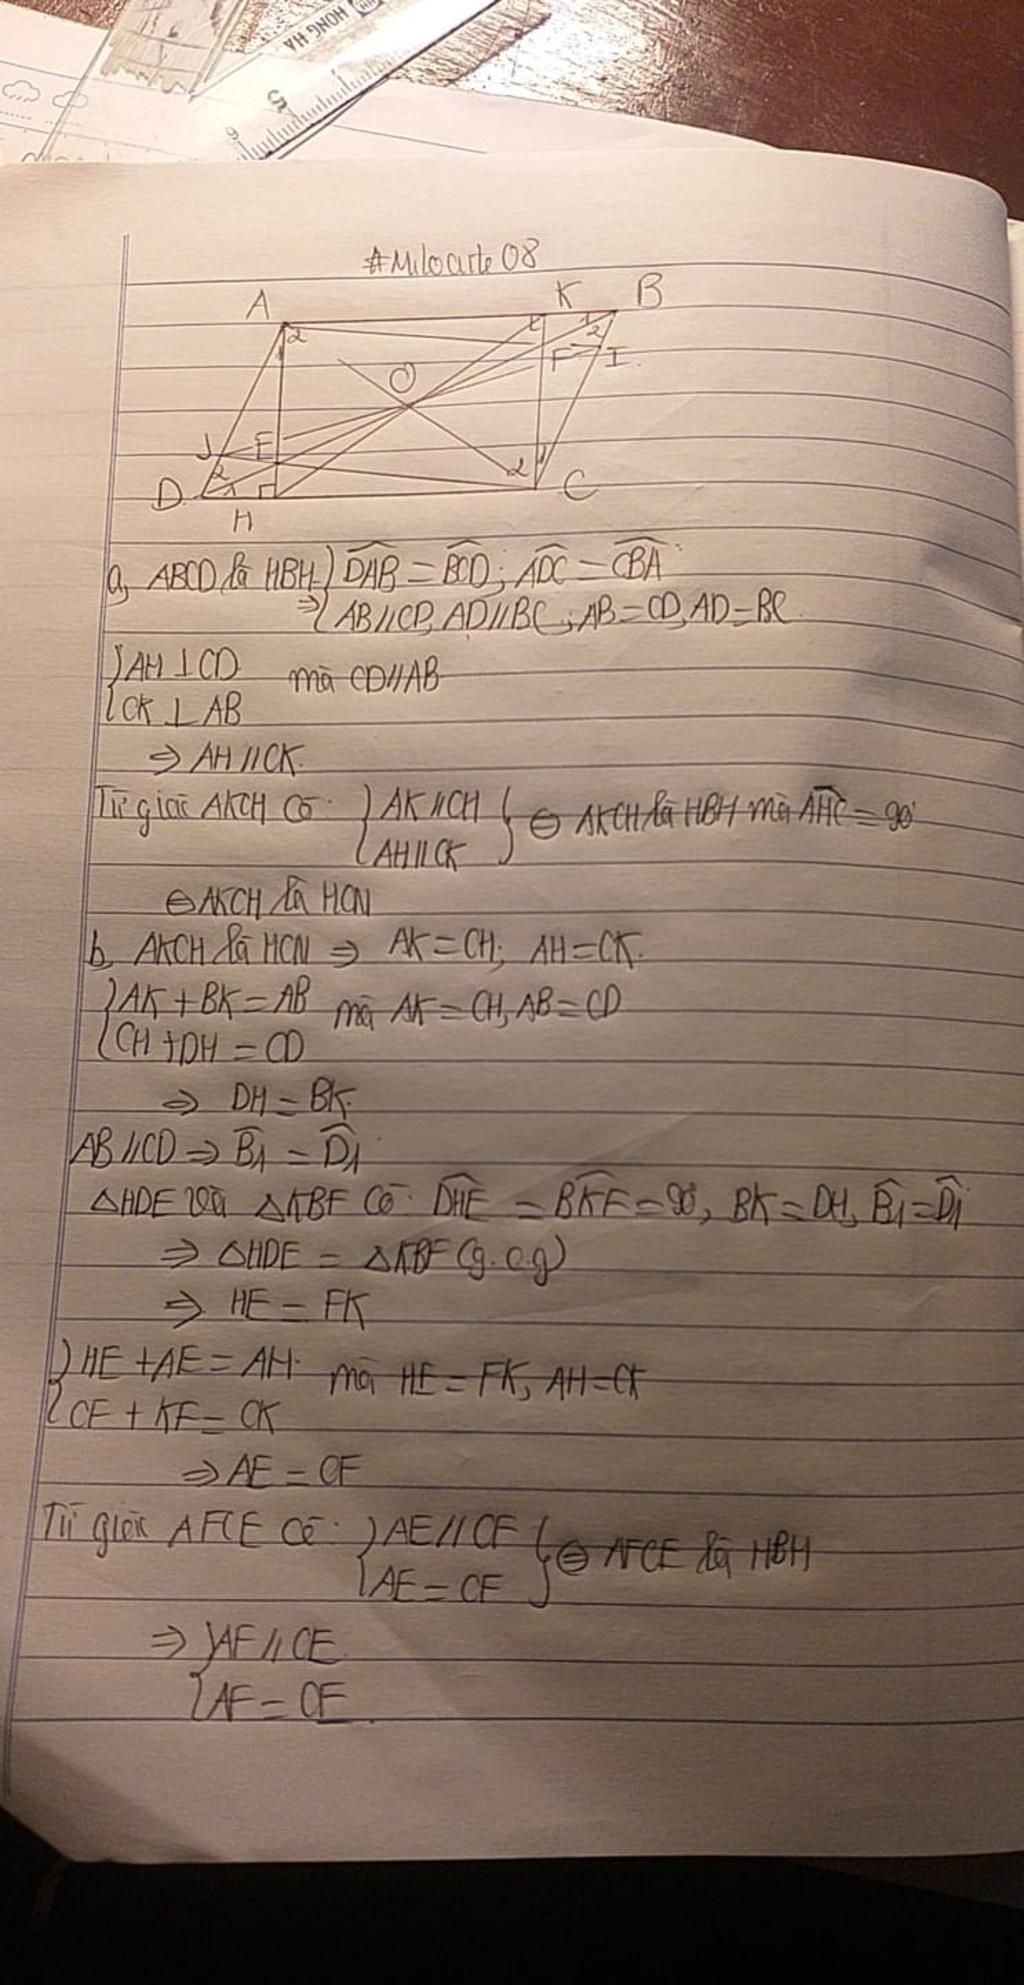 HONG HA
5
6
#Miloarte08
A K B
2 1 2
O F I
J E
2 2 1
D 1 C
H
a, ABCD là HBH } \widehat{DAB} = \widehat{BCD}; \widehat{ADC} = \widehat{CBA}
⇒ { AB // CD, AD // BC; AB = CD, AD = BC.
{ AH ⊥ CD mà CD // AB
CK ⊥ AB
⇒ AH // CK.
Tứ giác AKCH có: { AK // CH } ⇔ AKCH là HBH mà \widehat{AHC} = 90°
AH // CK
⇔ AKCH là HCN
b, AKCH là HCN ⇒ AK = CH; AH = CK.
{ AK + BK = AB mà AK = CH, AB = CD
CH + DH = CD
⇒ DH = BK.
AB // CD ⇒ \widehat{B1} = \widehat{D1}
△HDE và △KBF có: \widehat{DHE} = \widehat{BKF} = 90°, BK = DH, \widehat{B1} = \widehat{D1}
⇒ △HDE = △KBF (g.c.g)
⇒ HE = FK
{ HE + AE = AH mà HE = FK, AH = CK
CF + KF = CK
⇒ AE = CF
Tứ giác AFCE có: { AE // CF } ⇔ AFCE là HBH
AE = CF
⇒ { AF // CE
AF = CE.